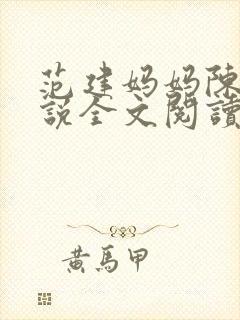 范建妈妈陈
説全文閱讀
黃馬甲